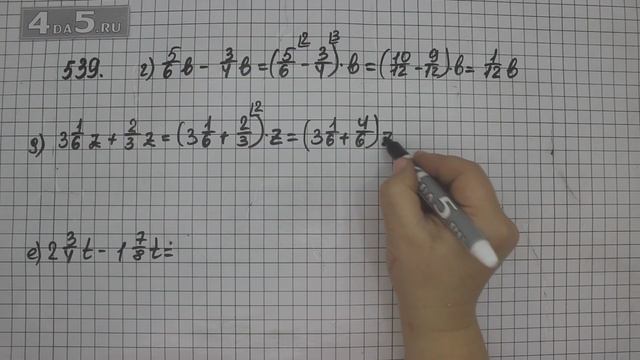 4DA5.RU
539. г) 5/6 в - 3/4 в = (5/6 \2 - 3/4 \3) · в = (10/12 - 9/12) · в = 1/12 в
д) 3 1/6 z + 2/3 z = (3 1/6 + 2/3 \2) · z = (3 1/6 + 4/6) z
е) 2 3/4 t - 1 7/8 t =